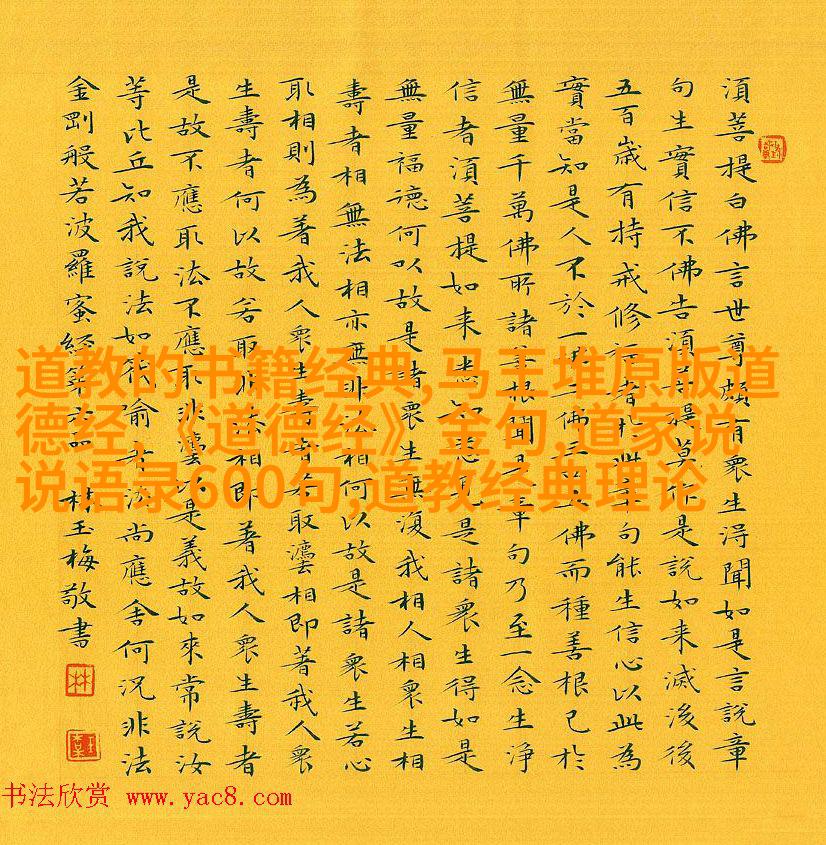 須菩提白佛言世尊頗有衆生得聞如是言說章
句生實信不佛告須菩提莫作是說如来滅後後
五百歲有持戒修福者於此章句能生信心以此為
實當知是人不於一佛二佛三四五佛而種善根已於
無量千萬佛所諸善根聞是章句乃至一念生淨
信者須菩提如来悉知悉見是諸衆生得如是
無量福德何以故是諸衆生無復我相人相衆生相
壽者相無法相亦無非法相何以故是諸衆生若心
取相則為著我人衆生壽者若取灋相即著我人衆
生壽者何以故若取非法相即著我人衆生壽者
是故不應取法不應取非灋以是義故如來常說汝
等比丘知我說法如筏喻者法尚應舍何況非法
金剛般若波羅蜜經第六品 林玉梅敬書
林
道教的书籍经典,马王堆原版道
德经,《道德经》金句,道家说
说语录600句,道教经典理论
书法欣赏 www.yac8.com